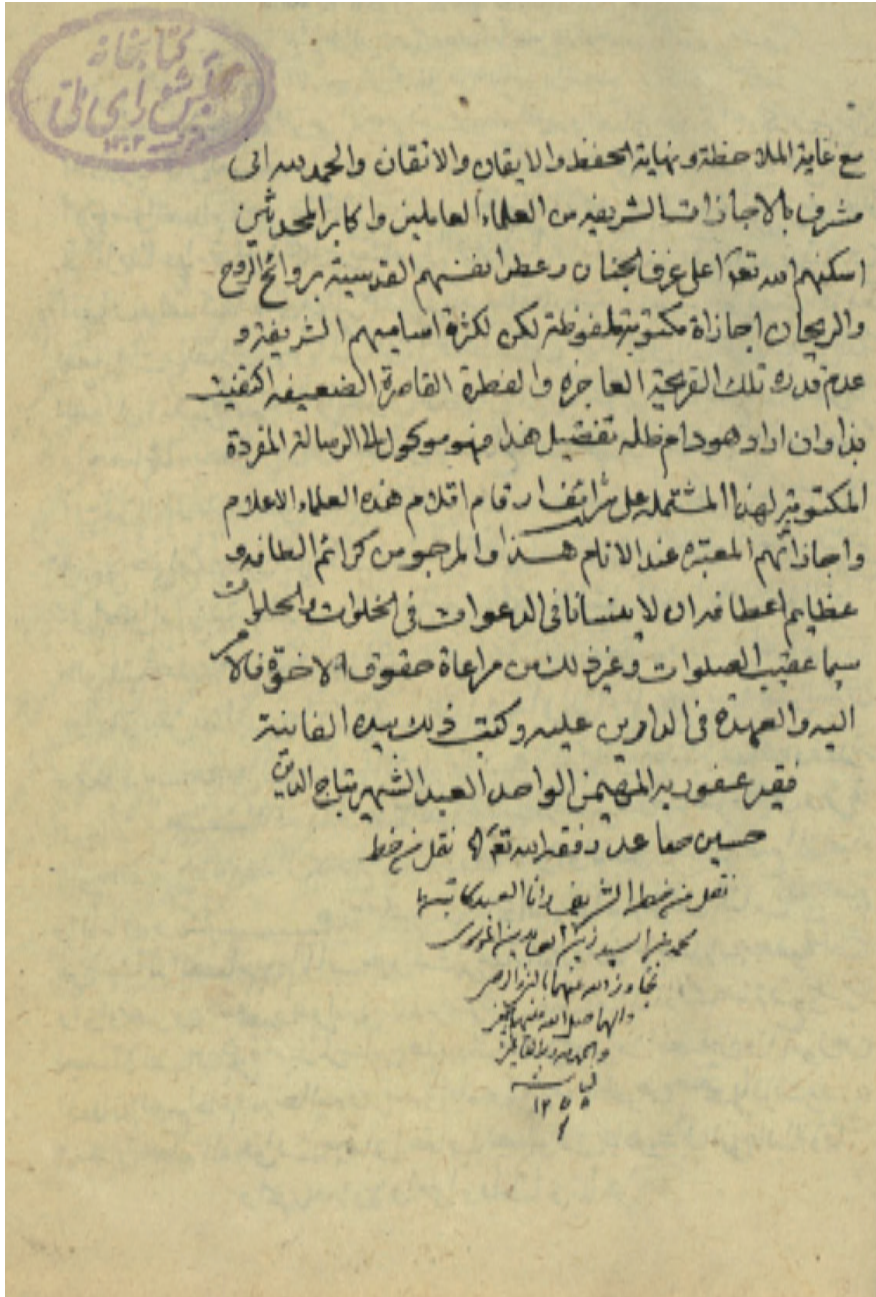 كتابخانه
مجلس شورای ملی
١٣٠٢
مع غاية الملاحظة ونهاية الحفظ والايقان والاتقان والحمد لله انى
مشرف بالاجازات الشريفه من العلماء العاملين واكابر المحدثين
اسكنهم الله تعه اعلى غرف الجنان وعطر انفسهم القدسية بروائح الروح
والريحان اجازاة مكتوبة ملفوظة لكن لكثرة اساميهم الشريفة و
عدم قدرة تلك القريحة العاجزه والفطرة القاصرة الضعيفه اكتفيت
بذا وان اراد هو دام ظله تفصيل هذا فهو موكول الى الرسالة المفردة
المكتوبة لهذا المشتمله على شرائف ارقام اقلام هذه العلماء الاعلام
واجازاتهم المعتبره عند الانام هذا والمرجو من كرائم الطافه و
عظايم اعطافه ان لا ينسانا فى الدعوات فى الخلوات والجلوات
سيما عقيب الصلوات وغير ذلك من مراعاة حقوق الاخوة فالامر
اليه والعهدة فى الدارين عليه وكتب ذلك بيده الفانية
فقير عفو ربه المهيمن الواحد العبد الشهير بتاج الدين
حسين صاعد وفقه الله تعه نقل من خط
نقل من خطه الشريف وانا العبد كاتبها
محمد بن السيد زين العابدين الموسوى
تجاوز الله عنهما
والحمد لله رب العالمين
١٢٥٨